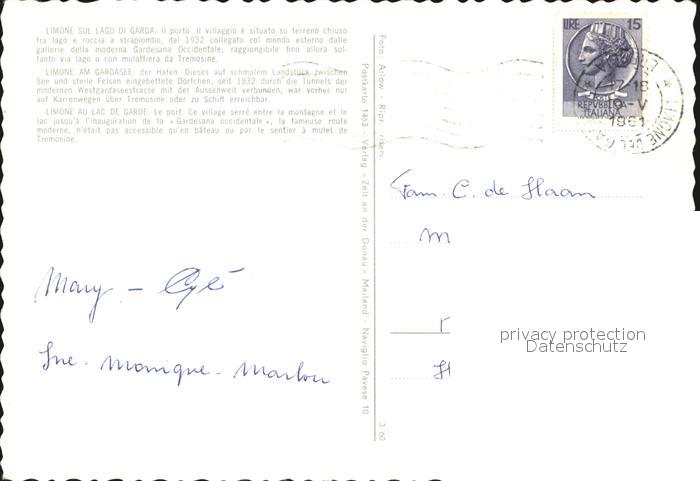 LIMONE SUL LAGO DI GARDA: Il porto. Il villaggio è situato su terreno chiuso
fra lago e roccia a strapiombo, dal 1932 collegato col mondo esterno dalle
gallerie della moderna Gardesana Occidentale; raggiungibile fino allora sol-
tanto via lago o con mulattiera da Tremosine.
LIMONE AM GARDASEE: der Hafen. Dieses auf schmalem Landstück zwischen
See und steile Felsen eingebettete Dörfchen, seit 1932 durch die Tunnels der
modernen Westgardaseestrasse mit der Aussenwelt verbunden, war vorher nur
auf Karrenwegen über Tremosine oder zu Schiff erreichbar.
LIMONE AU LAC DE GARDE: Le port. Ce village serré entre la montagne et le
lac jusqu'à l'inauguration de la «Gardesana occidentale», la fameuse route
moderne, n'était pas accessible qu'en bâteau ou par le sentier à mulet de
Tremosine.
Mary -
Monique - Marlou
Foto: Arlow - Ripr. riserv.
Postkarte 1463 - Verlag «Zeit an der Donau» Mailand - Naviglio Pavese 10
3/60
LIRE 15
REPVBBLICA
ITALIANA
18
-V
1961
LIMONE DEL GA
Fam. C. de Haan
M
H
privacy protection
Datenschutz